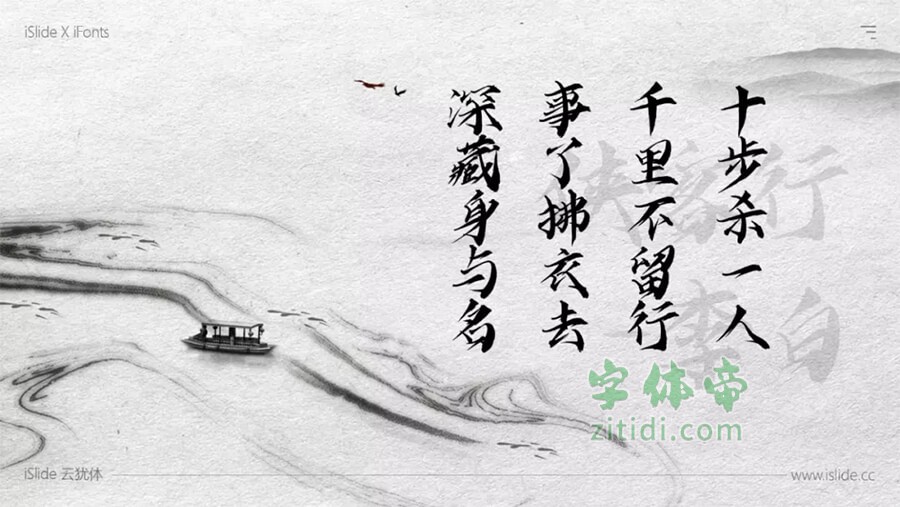 iSlide X iFonts
十步杀一人
千里不留行
事了拂衣去
深藏身与名
侠客行
李白
字体帝
zitidi.com
iSlide 云犹体
www.islide.cc